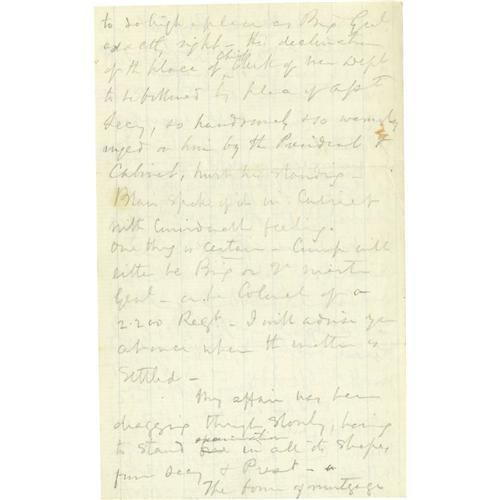 to so high a place as Brig Genl
exactly right - the declination
of the place of Chief Clerk of War Dept
to be followed by place of Asst
Secy, so handsomely & so warmly
urged on him by the President &
Cabinet, hurt his standing -
Blair spoke of it in Cabinet
with considerable feeling.
One thing is certain - Crump will
either be Brig or Qr master
Genl - or be Colonel of a
2.200 Regt - I will advise you
at once when the matter is
settled -
My affair has been
dragging through slowly, having
to stand examination in all its shapes,
from Secy & Presdt -
The form of mortgage